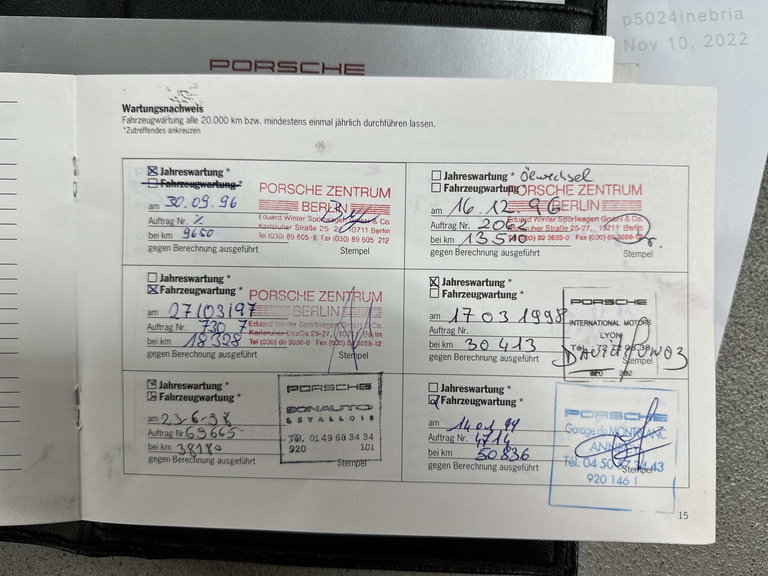 p5024inebria
Nov 10, 2022
PORSCHE
Wartungsnachweis
Fahrzeugwartung alle 20.000 km bzw. mindestens einmal jährlich durchführen lassen.
*Zutreffendes ankreuzen
Jahreswartung *
Fahrzeugwartung *
am 30.09.96
Auftrag Nr. %
bei km 9650
gegen Berechnung ausgeführt
PORSCHE ZENTRUM
BERLIN
Eduard Winter Sportwagen GmbH & Co.
Karlsruher Straße 25 10711 Berlin
Tel (030) 89 605-6, Fax (030) 89 605 212
Jahreswartung * Ölwechsel
Fahrzeugwartung *
am 16.12.96
Auftrag Nr.
bei km 13510
gegen Berechnung ausgeführt
PORSCHE ZENTRUM
BERLIN
Eduard Winter Sportwagen GmbH & Co.
Karlsruher Straße 25-27, 10711 Berlin
Stempel
Jahreswartung *
Fahrzeugwartung *
am 27/03/97
Auftrag Nr. 730 7
bei km 18328
gegen Berechnung ausgeführt
PORSCHE ZENTRUM
BERLIN
Eduard Winter Sportwagen GmbH & Co.
Karlsruher Straße 25-27, 10711 Berlin
Stempel
Jahreswartung *
Fahrzeugwartung *
am 17 03 1998
Auftrag Nr.
bei km 30 413
gegen Berechnung ausgeführt
PORSCHE
INTERNATIONAL MOTORS
LYON
Stempel
920 202
Jahreswartung *
Fahrzeugwartung *
am 23-6-98
Auftrag Nr. 69665
bei km 38180
gegen Berechnung ausgeführt
PORSCHE
SONAUTO
LEVALLOIS
Tél. 01 49 68 34 34
920 101
Stempel
Jahreswartung *
Fahrzeugwartung *
am 14.01.99
Auftrag Nr. 4714
bei km 50836
gegen Berechnung ausgeführt
PORSCHE
Garage du MONT BLANC
Stempel
920 146 1
15